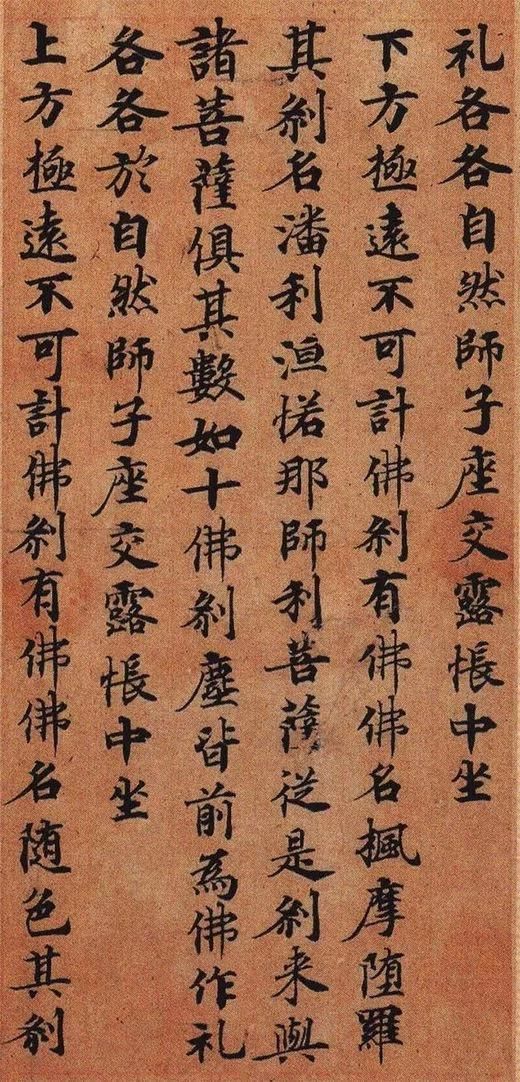 礼各各自然師子座交露帳中坐
下方極遠不可計佛刹有佛佛名楓摩堕羅
其刹名潘利洹惒那師利菩薩從是刹来與
諸菩薩俱其數如十佛刹塵皆前為佛作礼
各各於自然師子座交露帳中坐
上方極遠不可計佛刹有佛佛名随色其刹